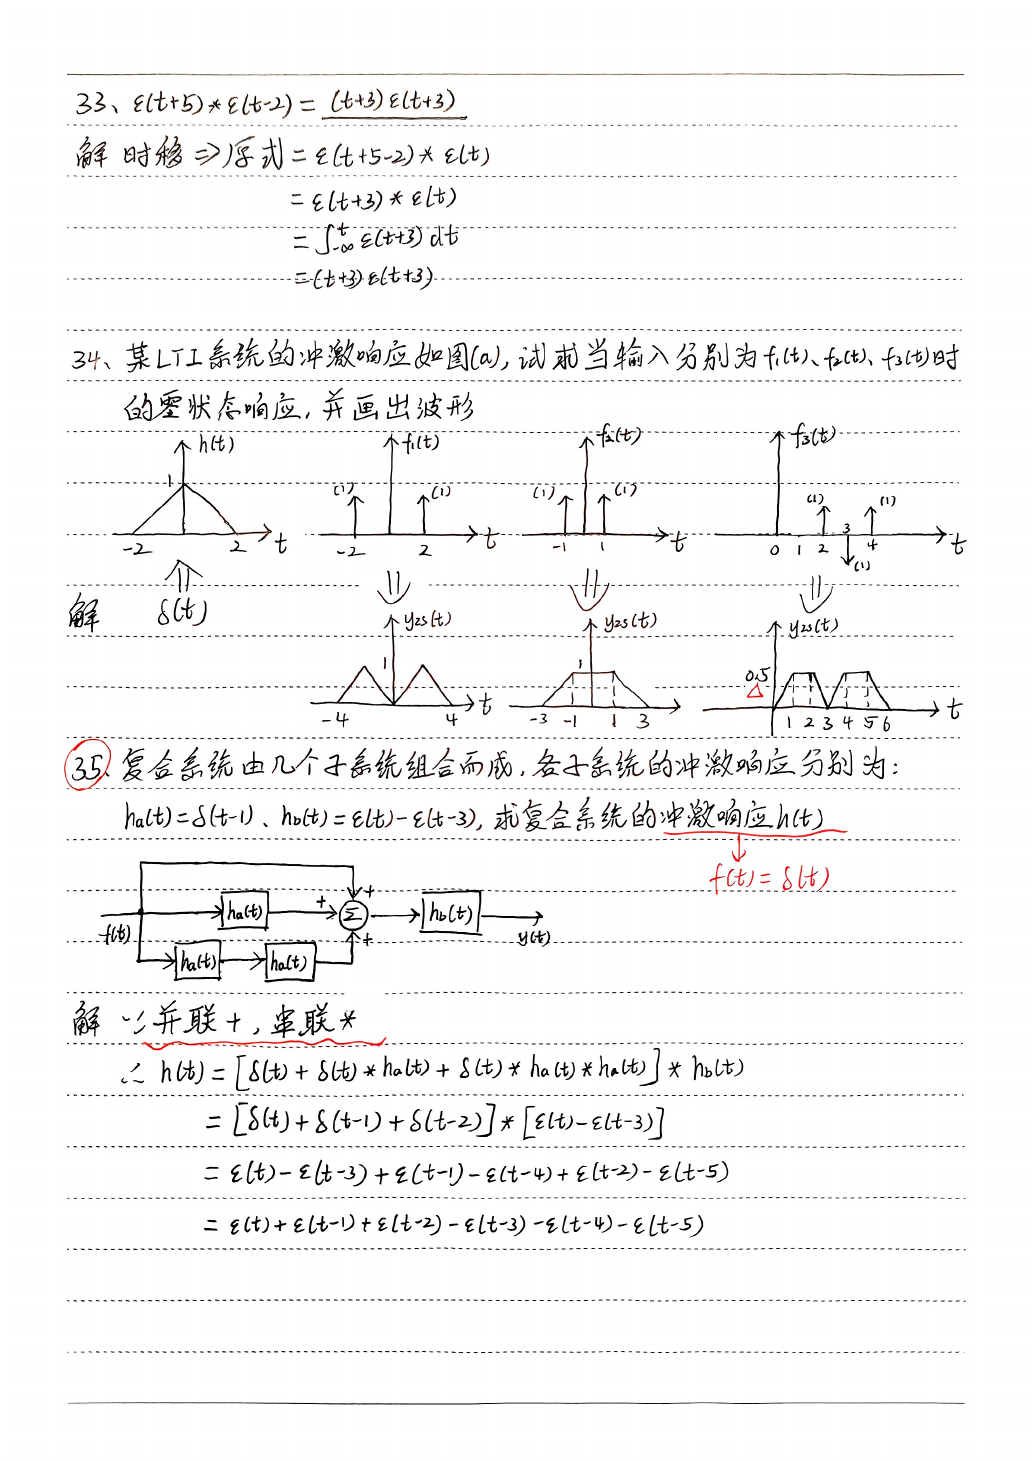 33、ε(t+5)*ε(t-2)= (t+3)ε(t+3)
解 时移⇒原式=ε(t+5-2)*ε(t)
=ε(t+3)*ε(t)
=∫_{-∞}^{t} ε(t+3)dt
=(t+3)ε(t+3)
34、某LTI系统的冲激响应如图(a),试求当输入分别为f₁(t)、f₂(t)、f₃(t)时
的零状态响应,并画出波形
h(t) f₁(t) f₂(t) f₃(t)
1 (1) (1) (1) (1) (1) (1)
-2 2 t -2 2 t -1 1 t 0 1 2 3 4 t
(1)
解 δ(t)
yzs(t) yzs(t) yzs(t)
1 1 0.5
-4 4 t -3 -1 1 3 1 2 3 4 5 6 t
35、复合系统由几个子系统组合而成,各子系统的冲激响应分别为:
ha(t)=δ(t-1)、hb(t)=ε(t)-ε(t-3),求复合系统的冲激响应h(t)
f(t)=δ(t)
+
ha(t) + Σ hb(t)
f(t) + y(t)
ha(t) ha(t)
解 ∵并联+,串联*
∴ h(t)=[δ(t)+δ(t)*ha(t)+δ(t)*ha(t)*ha(t)]*hb(t)
=[δ(t)+δ(t-1)+δ(t-2)]*[ε(t)-ε(t-3)]
=ε(t)-ε(t-3)+ε(t-1)-ε(t-4)+ε(t-2)-ε(t-5)
=ε(t)+ε(t-1)+ε(t-2)-ε(t-3)-ε(t-4)-ε(t-5)